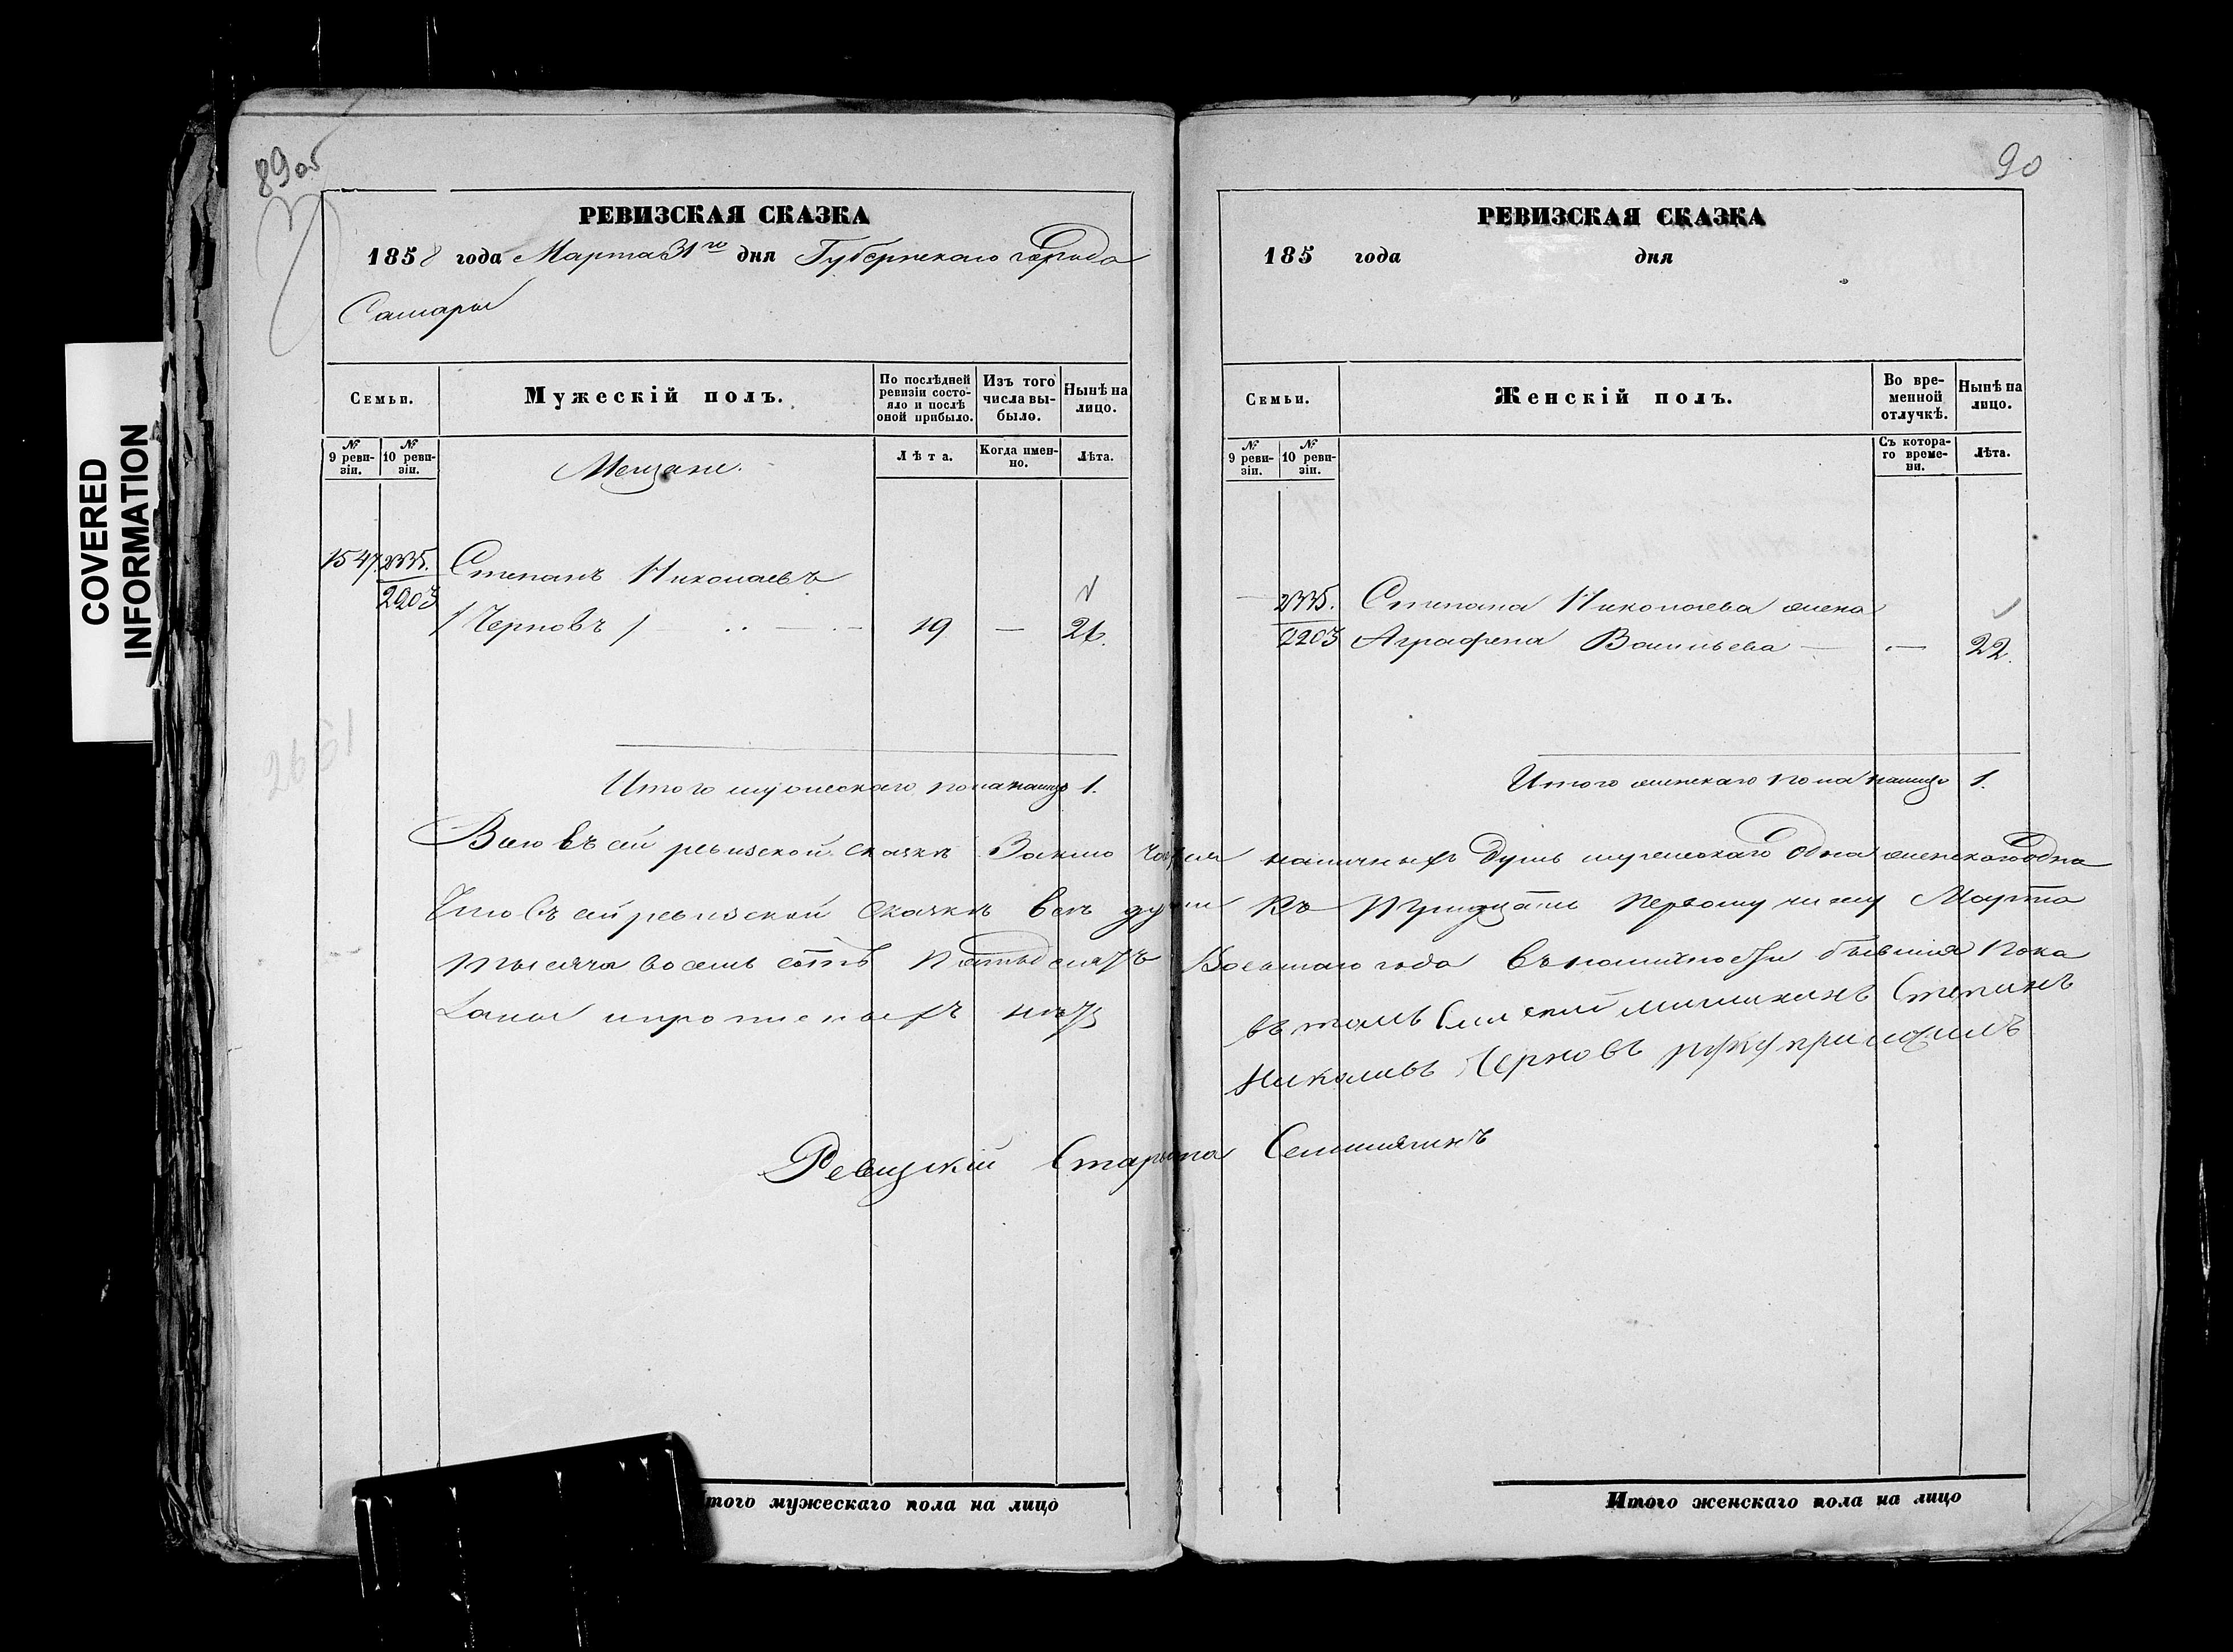 89 об
РЕВИЗСКАЯ СКАЗКА
1858 года Марта 31го дня Губернскаго города
Самары
Семьи.
Мужескій полъ.
По послѣдней ревизіи состояло и послѣ оной прибыло.
Изъ того числа выбыло.
Нынѣ на лицо.
№ 9 ревизіи.
№ 10 ревизіи.
Мещане.
Лѣта.
Когда именно.
Лѣта.
1547. 2335. Степанъ Николаевъ
2203
/Черновъ/ 19 — 26.
2651
Итого мужескаго пола налицо 1.
90
РЕВИЗСКАЯ СКАЗКА
185 года дня
Семьи.
Женскій полъ.
Во временной отлучкѣ.
Нынѣ на лицо.
№ 9 ревизіи.
№ 10 ревизіи.
Съ котораго времени.
Лѣта.
2335. Степана Николаева жена
2203 Аграфена Васильева — — 22.
Итого женскаго пола налицо 1.
Всего въ сей ревизской сказкѣ Заключается наличныхъ душъ мужескаго одна женскаго одна
Что въ сей ревизской сказкѣ всѣ души Къ Тридцать первому числу Марта
тысяча восемь сотъ Пятьдесятъ Восьмаго года въ наличности бывшия пока
заны и прописныхъ нѣтъ
въ томъ Самской мищининъ Степанъ
Николаивъ Черновъ руку приложилъ
Ревизкій Староста
Итого мужескаго пола на лицо
Итого женскаго пола на лицо
COVERED
INFORMATION